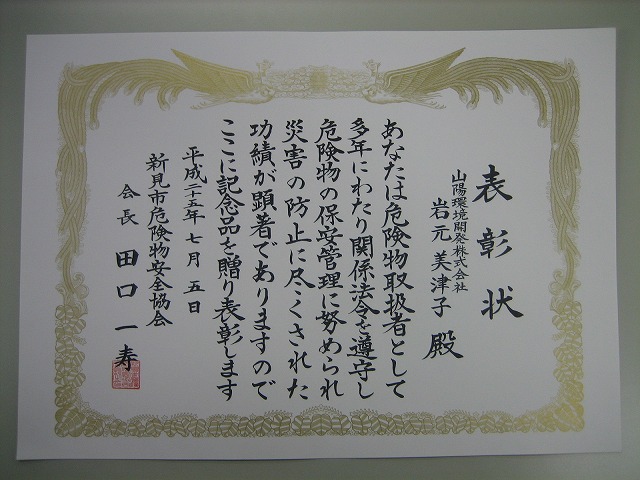 表彰状
山陽環境開発株式会社
岩元美津子殿
あなたは危険物取扱者として
多年にわたり関係法令を遵守し
危険物の保安管理に努められ
災害の防止に尽くされた
功績が顕著でありますので
ここに記念品を贈り表彰します
平成二十五年七月五日
新見市危険物安全協会
会長 田口一寿